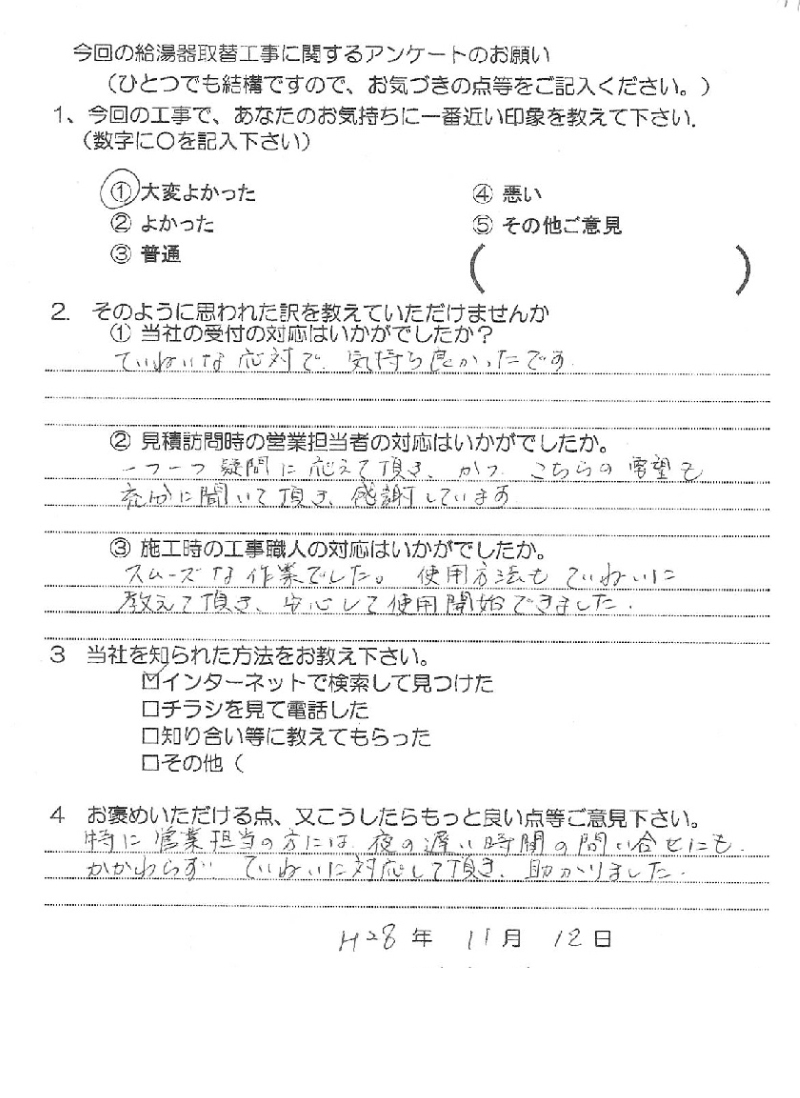 今回の給湯器取替工事に関するアンケートのお願い
（ひとつでも結構ですので、お気づきの点等をご記入ください。）
1、今回の工事で、あなたのお気持ちに一番近い印象を教えて下さい.
（数字に〇を記入下さい）
① 大変よかった ④ 悪い
② よかった ⑤ その他ご意見
③ 普通
( )
2. そのように思われた訳を教えていただけませんか
① 当社の受付の対応はいかがでしたか？
ていねいな応対で、気持ち良かったです
② 見積訪問時の営業担当者の対応はいかがでしたか。
一つ一つ疑問に応えて頂き、かつ、こちらの要望も
充分に聞いて頂き、感謝しています
③ 施工時の工事職人の対応はいかがでしたか。
スムーズな作業でした。 使用方法も ていねいに
教えて頂き、安心して使用開始できました.
3 当社を知られた方法をお教え下さい。
☑インターネットで検索して見つけた
□チラシを見て電話した
□知り合い等に教えてもらった
□その他（
4 お褒めいただける点、又こうしたらもっと良い点等ご意見下さい。
特に営業担当の方には、夜の遅い時間の問い合せにも
かかわらず、ていねいに対応して頂き、助かりました.
H28年 11月 12日